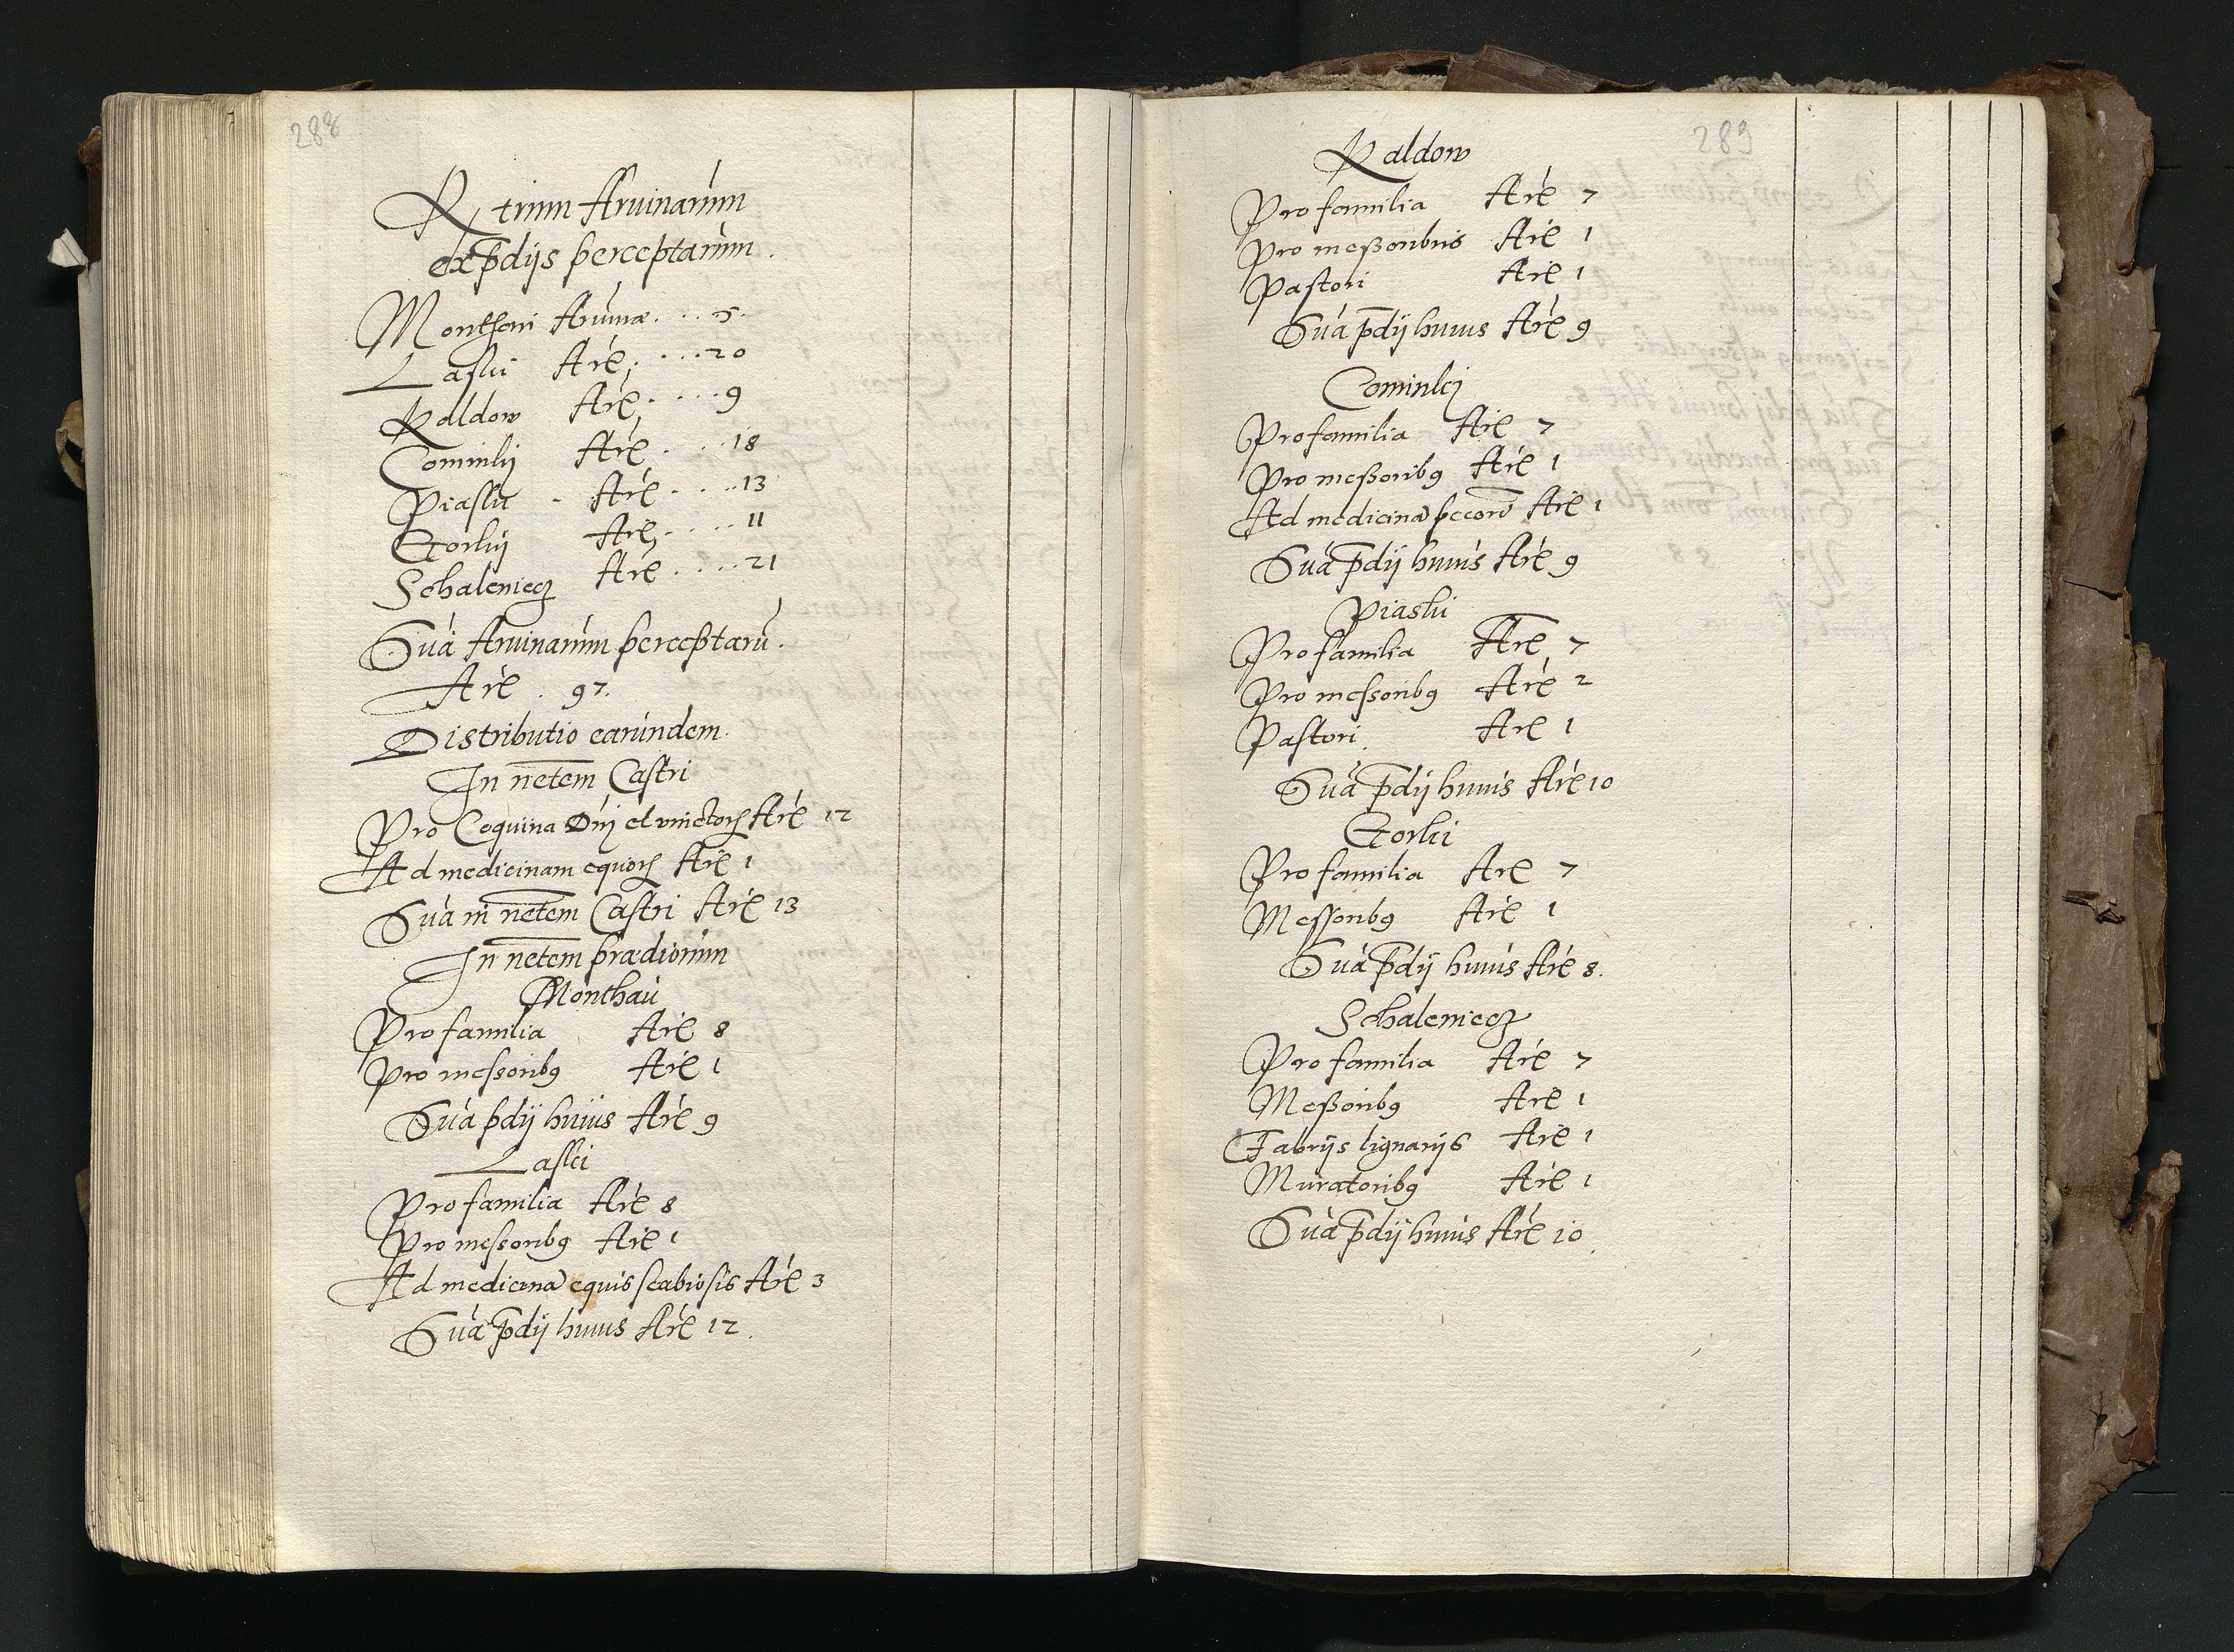 288
Rẽtrum Aruinarum
ex p̄dijs perceptarum.
Monthaui Aruinæ....5.
Laski Arẽ....20
Raldow Arẽ....9
Cominkij Arẽ....18
Piaski Arẽ....13
Gorkij Arẽ....11
Schaleniecz Arẽ....21
Sũa Aruinarum perceptarũ.
Arẽ. 97.
Distributio earundem.
In ñetem Castri
Pro Coquina Dñj et vinctorꝝ Arẽ 12
Ad medicinam equorꝝ Arẽ 1
Sũa in ñetem Castri Arẽ 13
In ñetem prædiorum
Monthau
Pro familia Arẽ 8
Pro messoribꝰ Arẽ 1
Sũa p̄dij huius Arẽ 9
Laski
Pro familia Arẽ 8
Pro messoribꝰ Arẽ 1
Ad medicinã equis scabiosis Arẽ 3
Sũa p̄dij huius Arẽ 12.
289
Raldow
Pro familia Arẽ 7
Pro meßoribus Arẽ 1
Pastori Arẽ 1
Sũa p̄dij huius Arẽ 9
Cominkj
Pro familia Arẽ 7
Pro meßoribꝰ Arẽ 1
Ad medicinã pecorũ Arẽ 1
Sũa p̄dij huius Arẽ 9
Piaski
Pro familia Arẽ 7
Pro messoribꝰ Arẽ 2
Pastori Arẽ 1
Sũa p̄dij huius Arẽ 10
Gorki
Pro familia Arẽ 7
Messoribꝰ Arẽ 1
Sũa p̄dij huius Arẽ 8.
Schaleniecz
Pro familia Arẽ 7
Meßoribꝰ Arẽ 1
Fabrijs lignarijs Arẽ 1
Muratoribꝰ Arẽ 1
Sũa p̄dij huius Arẽ 10